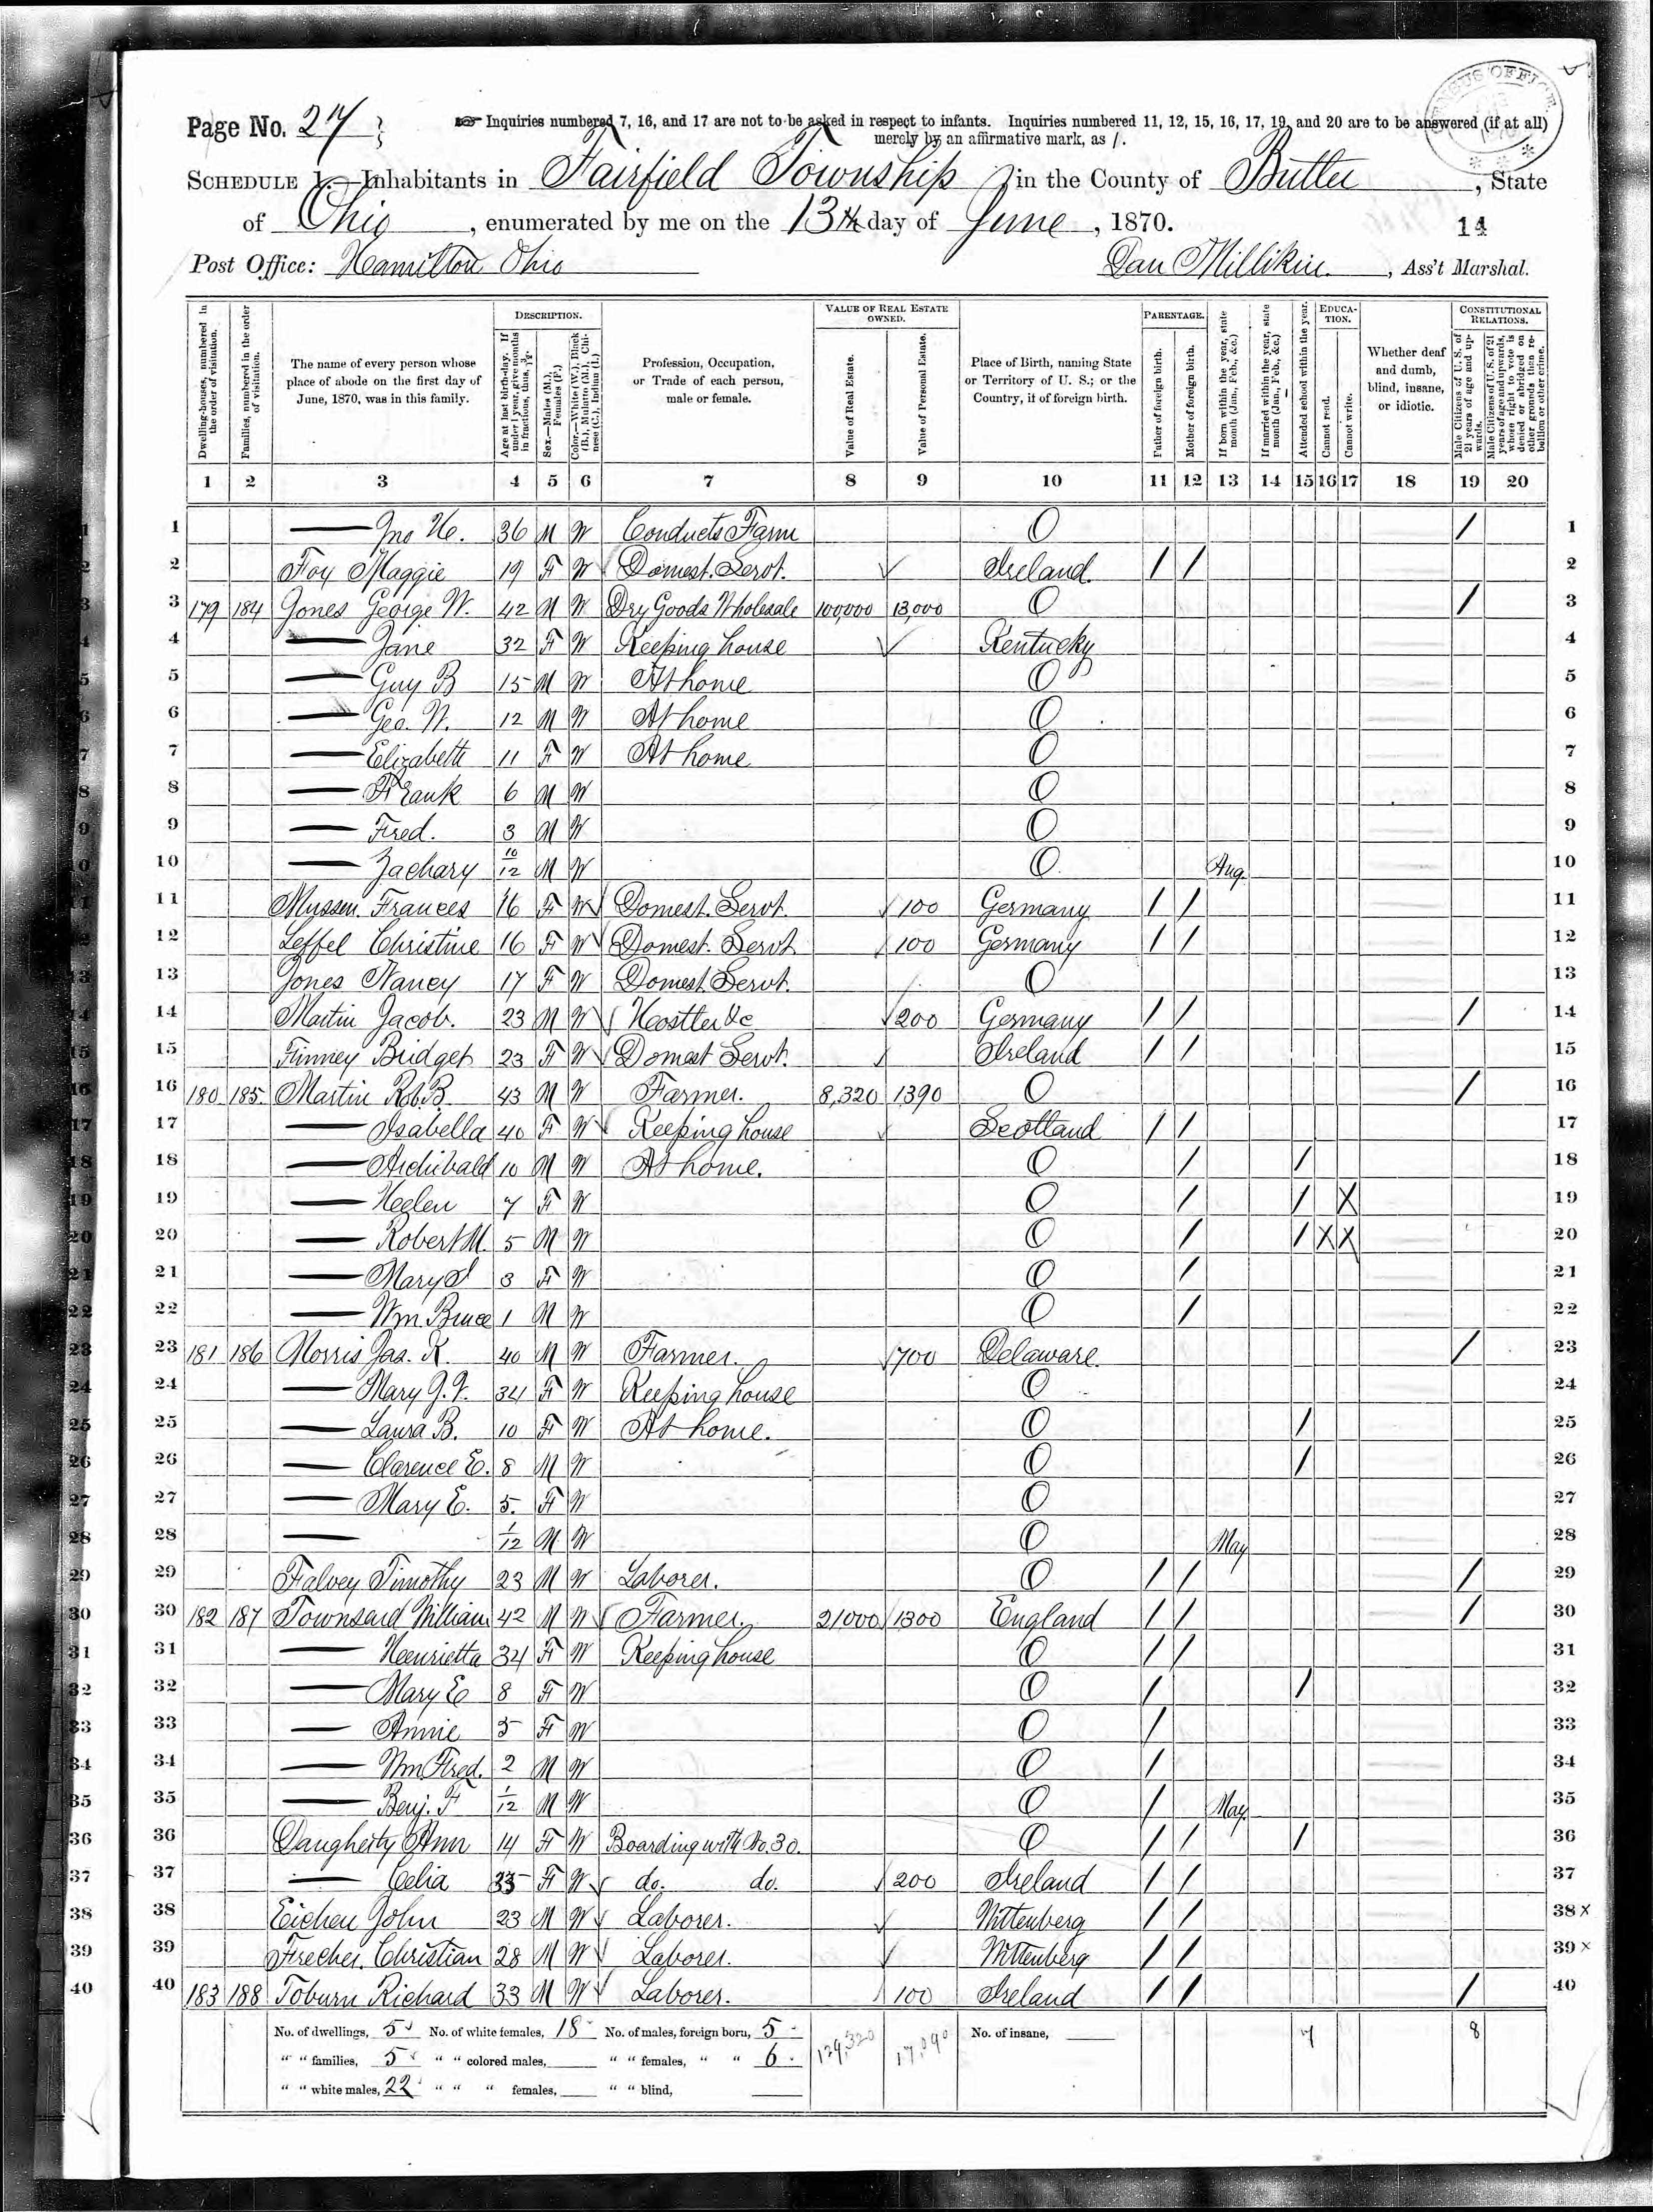 Page No. 27
Inquiries numbered 7, 16, and 17 are not to be asked in respect to infants. Inquiries numbered 11, 12, 15, 16, 17, 19, and 20 are to be answered (if at all)
merely by an affirmative mark, as /.
SCHEDULE 1.—Inhabitants in Fairfield Township, in the County of Butler, State
of Ohio, enumerated by me on the 13th day of June, 1870.
14
Post Office: Hamilton Ohio
Dan Millikin, Ass't Marshal.
CENSUS OFFICE
Dwelling-houses, numbered in the order of visitation.
Families, numbered in the order of visitation.
The name of every person whose place of abode on the first day of June, 1870, was in this family.
DESCRIPTION.
Age at last birth-day. If under 1 year, give months in fractions, thus, 3/12
Sex.—Males (M.), Females (F.)
Color.—White (W.), Black (B.), Mulatto (M.), Chinese (C.), Indian (I.)
Profession, Occupation, or Trade of each person, male or female.
VALUE OF REAL ESTATE OWNED.
Value of Real Estate.
Value of Personal Estate.
Place of Birth, naming State or Territory of U. S.; or the Country, if of foreign birth.
PARENTAGE.
Father of foreign birth.
Mother of foreign birth.
If born within the year, state month (Jan., Feb., &c.)
If married within the year, state month (Jan., Feb., &c.)
Attended school within the year.
EDUCATION.
Cannot read.
Cannot write.
Whether deaf and dumb, blind, insane, or idiotic.
CONSTITUTIONAL RELATIONS.
Male Citizens of U. S. of 21 years of age and upwards.
Male Citizens of U. S. of 21 years of age and upwards, whose right to vote is denied or abridged on other grounds than rebellion or other crime.
1 2 3 4 5 6 7 8 9 10 11 12 13 14 15 16 17 18 19 20
1 — Jno H. 36 M W Conducts Farm O / 1
2 Foy Maggie 19 F W Domest. Servt. Ireland. / / 2
3 179 184 Jones George W. 42 M W Dry Goods Wholesale 100,000 13,000 O / 3
4 — Jane 32 F W Keeping house Kentucky 4
5 — Guy B 15 M W At home O 5
6 — Geo. W. 12 M W At home O 6
7 — Elizabeth 11 F W At home O 7
8 — Frank 6 M W O 8
9 — Fred. 3 M W O 9
10 — Zachary 10/12 M W O Aug. 10
11 Frances 16 F W Domest. Servt. 100 Germany / / 11
12 Leffel Christine 16 F W Domest. Servt. 100 Germany / / 12
13 Jones Nancy 17 F W Domest. Servt. O 13
14 Martin Jacob. 23 M W Hostler &c 200 Germany / / / 14
15 Finney Bridget 23 F W Domest Servt. Ireland / / 15
16 180 185 Martin Rob. B. 43 M W Farmer. 8,320 1390 O / 16
17 — Isabella 40 F W Keeping house Scotland / / 17
18 — Archibald 10 M W At home. O / / 18
19 — Heelen 7 F W O / / X 19
20 — Robert M. 5 M W O / / X X 20
21 — Mary I 3 F W O / 21
22 — Wm. Bruce 1 M W O / 22
23 181 186 Morris Jas. K. 40 M W Farmer. 700 Delaware. / 23
24 — Mary J. V. 34 F W Keeping house O 24
25 — Laura B. 10 F W At home. O / 25
26 — Clarence E. 8 M W O / 26
27 — Mary E. 5. F W O 27
28 — 1/12 M W O May 28
29 Falvey Timothy 23 M W Laborer. O / / / 29
30 182 187 Townsard William 42 M W Farmer. 21000 1300 England / / / 30
31 — Henrietta 34 F W Keeping house O / / 31
32 — Mary E 8 F W O / / 32
33 — Annie 5 F W O / 33
34 — Wm Fred. 2 M W O / 34
35 — Benj. F 1/12 M W O / May 35
36 Daugherty Ann 14 F W Boarding with No. 30. O / / / 36
37 — Celia 35 F W do. do. 200 Ireland / / 37
38 Eichen John 23 M W Laborer. Wittenberg / / 38 x
39 Frecher. Christian 28 M W Laborer. Wittenberg / / 39 x
40 183 188 Toburn Richard 33 M W Laborer. 100 Ireland / / / 40
No. of dwellings, 5 No. of white females, 18 No. of males, foreign born, 5 129,320 17,090 No. of insane, 7 8
" " families, 5 " " colored males, " " females, " " 6
" " white males, 22 " " " females, " " blind,